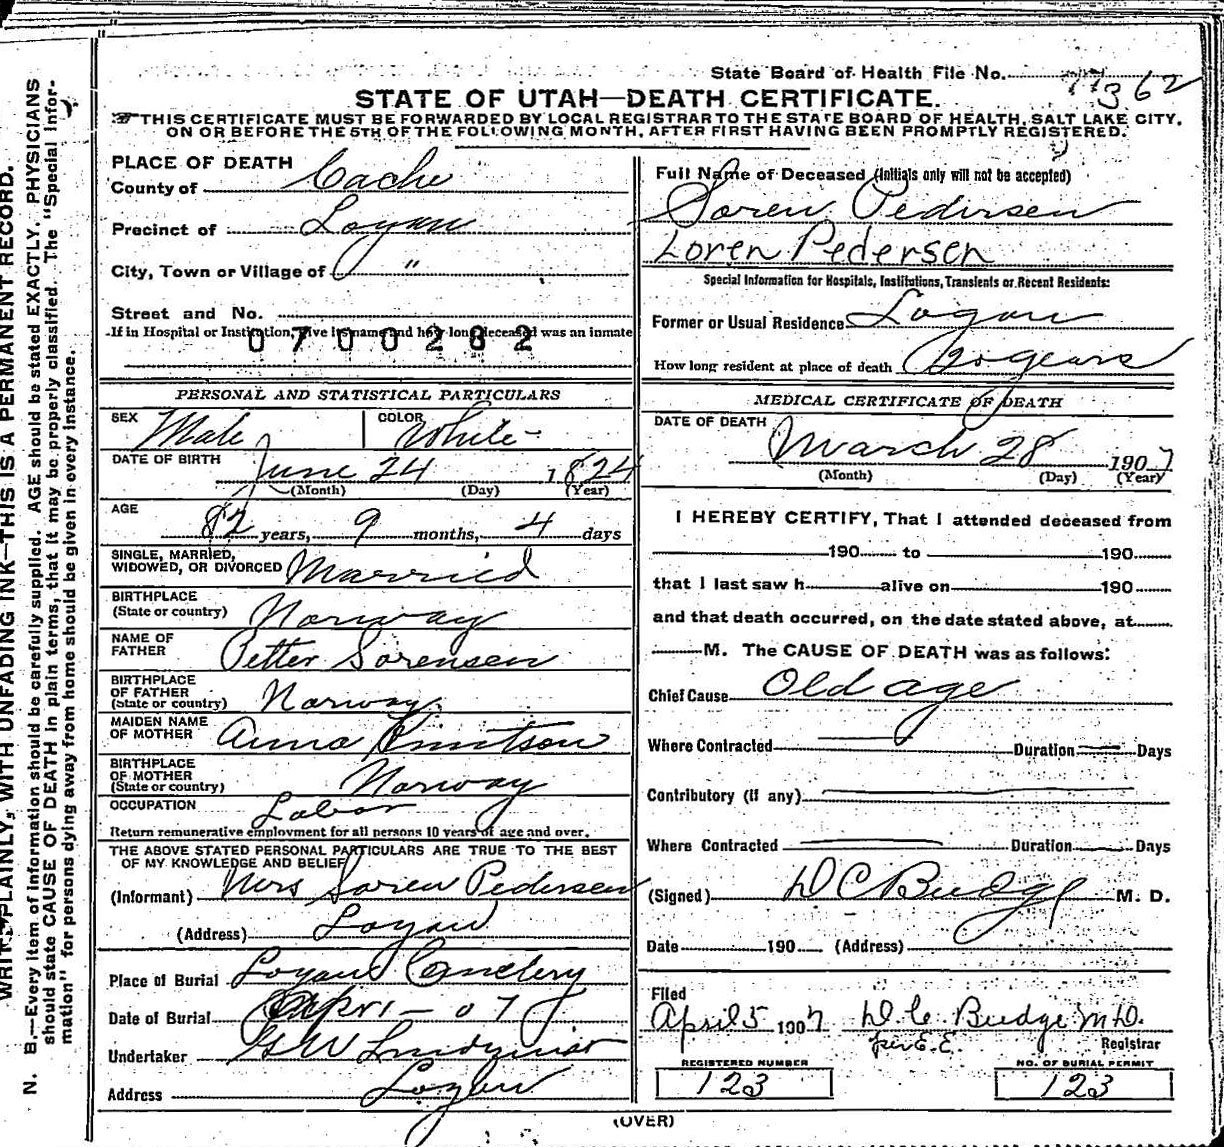 State Board of Health File No. 362
STATE OF UTAH—DEATH CERTIFICATE.
THIS CERTIFICATE MUST BE FORWARDED BY LOCAL REGISTRAR TO THE STATE BOARD OF HEALTH, SALT LAKE CITY,
ON OR BEFORE THE 5TH OF THE FOLLOWING MONTH, AFTER FIRST HAVING BEEN PROMPTLY REGISTERED.
WRITE PLAINLY, WITH UNFADING INK—THIS IS A PERMANENT RECORD.
N. B.—Every item of information should be carefully supplied. AGE should be stated EXACTLY. PHYSICIANS
should state CAUSE OF DEATH in plain terms, that it may be properly classified. The "Special Infor-
mation" for persons dying away from home should be given in every instance.
PLACE OF DEATH
County of Cache
Precinct of Logan
City, Town or Village of "
Street and No.
If in Hospital or Institution, give its name and how long deceased was an inmate
0700282
PERSONAL AND STATISTICAL PARTICULARS
SEX Male COLOR White
DATE OF BIRTH June 24 1824
(Month) (Day) (Year)
AGE 82 years, 9 months, 4 days
SINGLE, MARRIED,
WIDOWED, OR DIVORCED Married
BIRTHPLACE
(State or country) Norway
NAME OF
FATHER Petter Sorensen
BIRTHPLACE
OF FATHER
(State or country) Norway
MAIDEN NAME
OF MOTHER Anna Knutson
BIRTHPLACE
OF MOTHER
(State or country) Norway
OCCUPATION Labor
Return remunerative employment for all persons 10 years of age and over.
THE ABOVE STATED PERSONAL PARTICULARS ARE TRUE TO THE BEST
OF MY KNOWLEDGE AND BELIEF
(Informant) Mrs Soren Pedersen
(Address) Logan
Place of Burial Logan Cemetery
Date of Burial Apr 1 - 07
Undertaker G W
Address Logan
Full Name of Deceased (Initials only will not be accepted)
Soren Pedersen
Loren Pedersen
Special Information for Hospitals, Institutions, Transients or Recent Residents:
Former or Usual Residence Logan
How long resident at place of death 20 years
MEDICAL CERTIFICATE OF DEATH
DATE OF DEATH March 28 1907
(Month) (Day) (Year)
I HEREBY CERTIFY, That I attended deceased from
190 to 190
that I last saw h alive on 190
and that death occurred, on the date stated above, at
M. The CAUSE OF DEATH was as follows:
Chief Cause Old age
Where Contracted Duration Days
Contributory (if any)
Where Contracted Duration Days
(Signed) D C Budge M. D.
Date 190 (Address)
Filed
April 5 1907 D. C. Budge M.D.
per E.E. Registrar
REGISTERED NUMBER
123
NO. OF BURIAL PERMIT
123
(OVER)